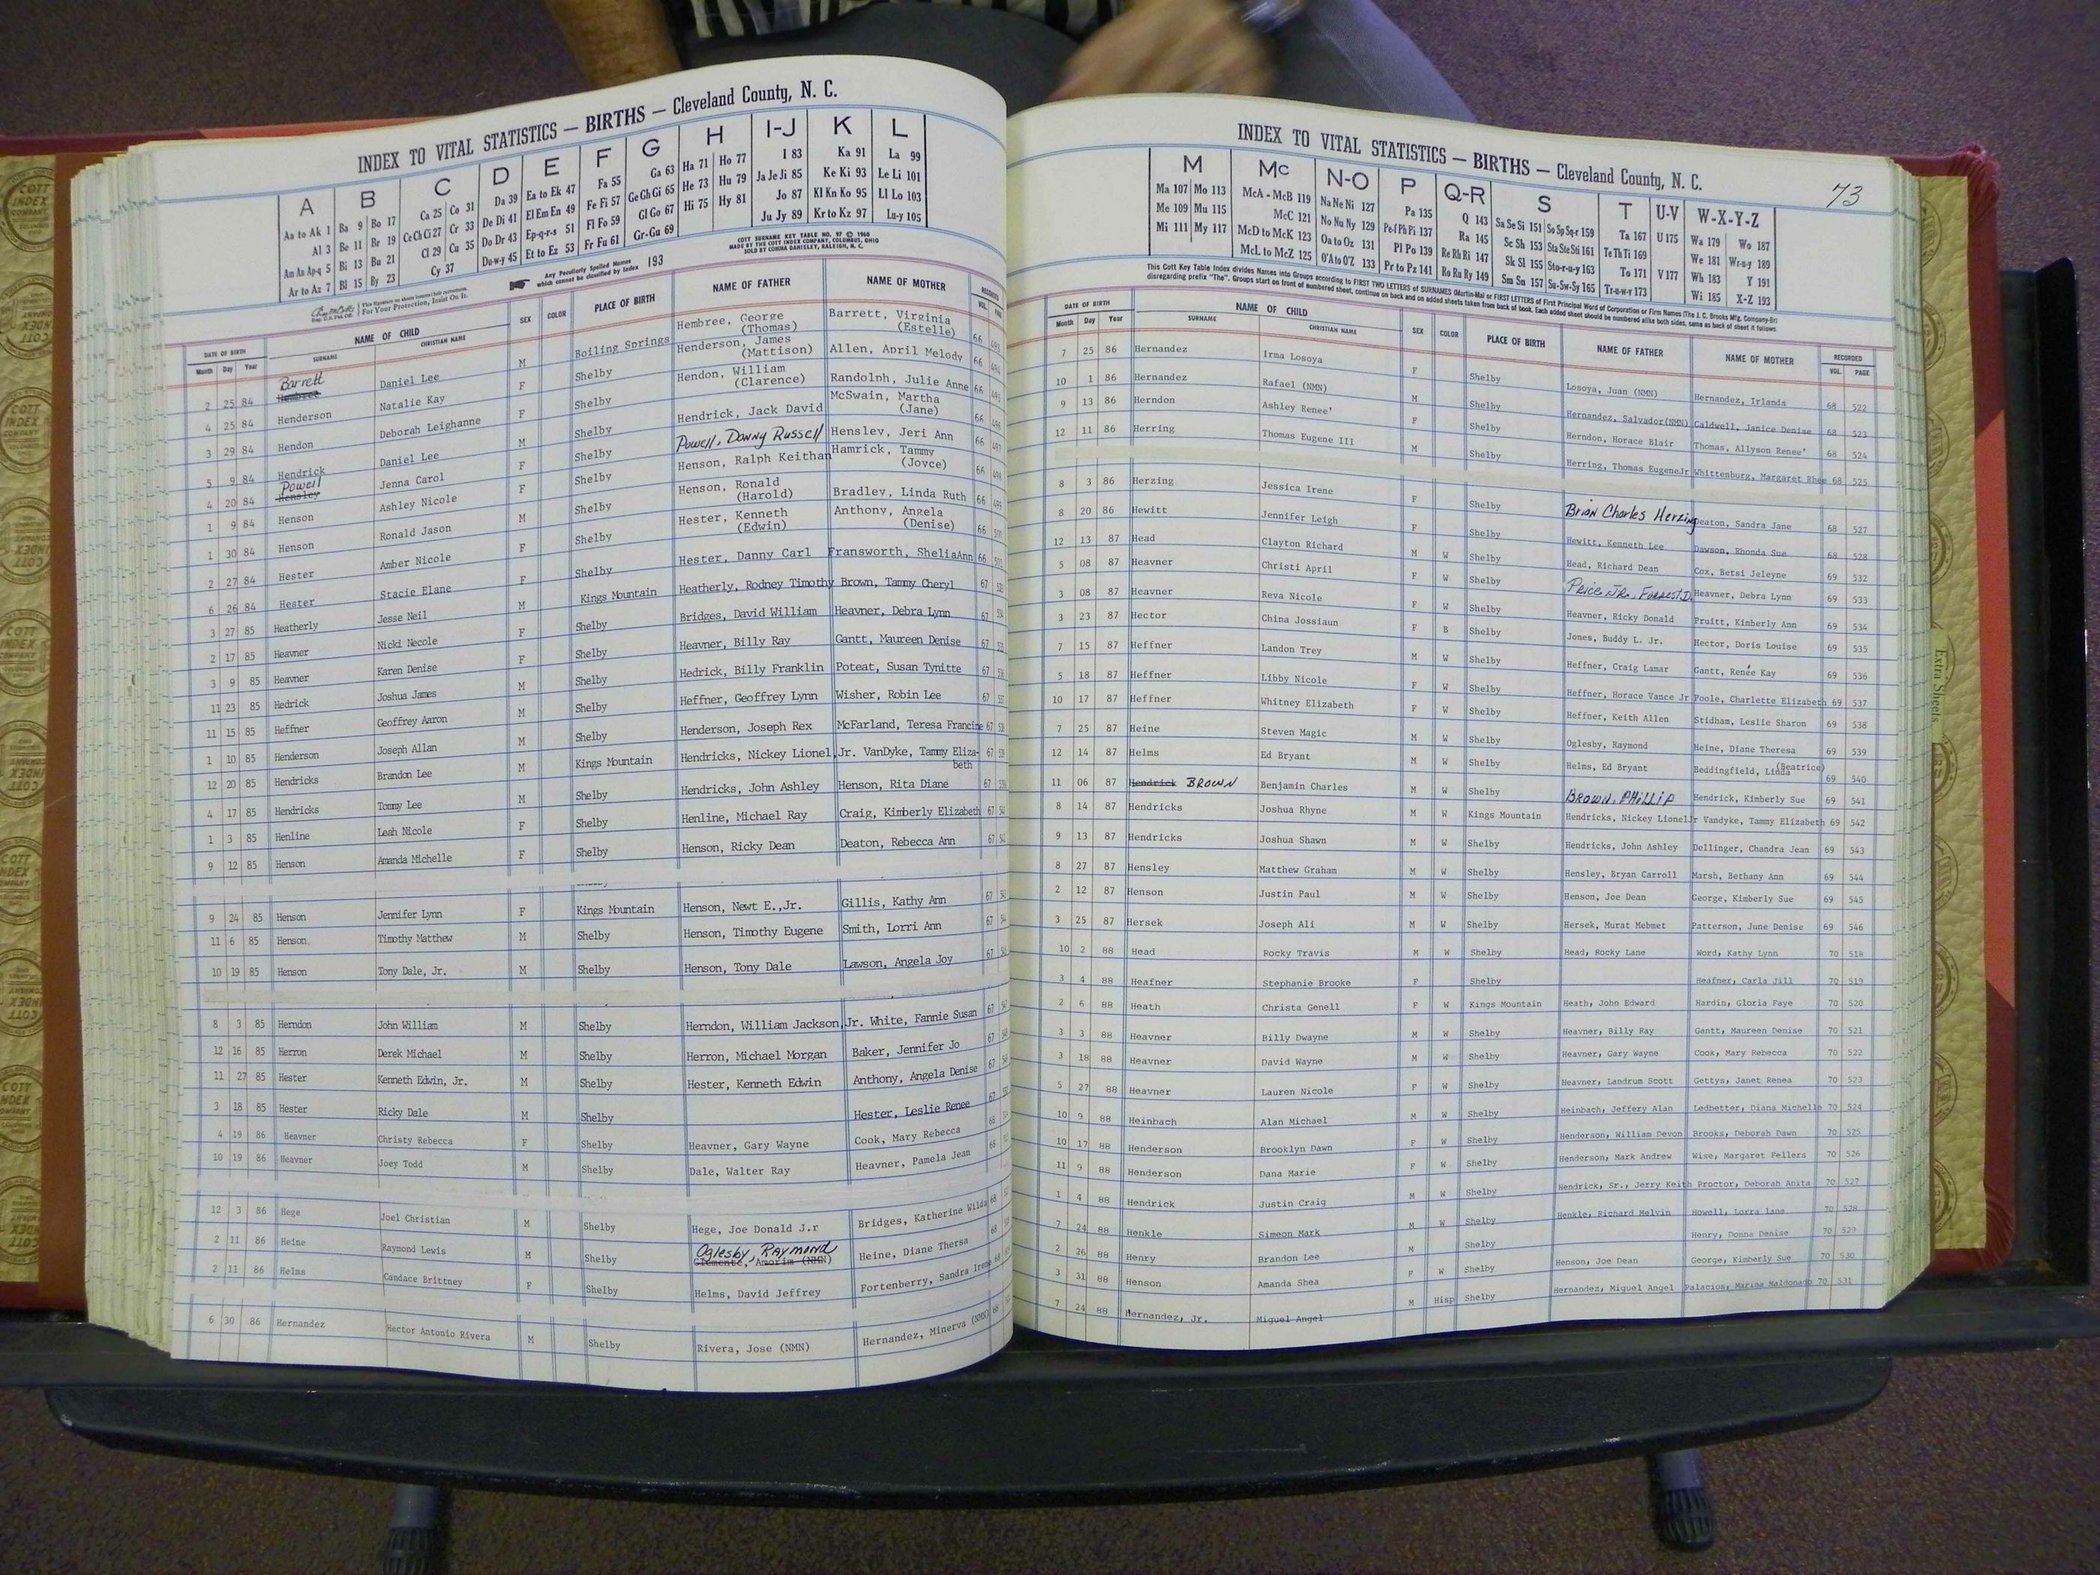 INDEX TO VITAL STATISTICS — BIRTHS — Cleveland County, N. C.
A B C D E F G H I-J K L
Aa to Ak 1 Ba 9 Bo 17 Ca 25 Co 31 Da 39 Ea to Ek 47 Fa 55 Ga 63 Ha 71 Ho 77 I 83 Ka 91 La 99
Al 3 Be 11 Br 19 Ce Ch Ci 27 Cr 33 De Di 41 El Em En 49 Fe Fi 57 Ge Gh Gi 65 He 73 Hu 79 Ja Je Ji 85 Ke Ki 93 Le Li 101
Am An Ap-q 5 Bi 13 Bu 21 Cl 29 Cu 35 Do Dr 43 Ep-q-r-s 51 Fl Fo 59 Gl Go 67 Hi 75 Hy 81 Jo 87 Kl Kn Ko 95 Ll Lo 103
Ar to Az 7 Bl 15 By 23 Cy 37 Du-w-y 45 Et to Ez 53 Fr Fu 61 Gr-Gu 69 Ju Jy 89 Kr to Kz 97 Lu-y 105
COTT SURNAME KEY TABLE NO. 97 © 1960
MADE BY THE COTT INDEX COMPANY, COLUMBUS, OHIO
SOLD BY OWEN G. DUNN
Any Peculiarly Spelled Names which cannot be classified by Index 193
For Your Protection, Insist On It.
DATE OF BIRTH NAME OF CHILD SEX COLOR PLACE OF BIRTH NAME OF FATHER NAME OF MOTHER RECORDED
Month Day Year SURNAME CHRISTIAN NAME VOL. PAGE
2 25 84 Barrett Hembree Daniel Lee M Boiling Springs Hembree, George (Thomas) Barrett, Virginia (Estelle) 66 493
4 25 84 Henderson Natalie Kay F Shelby Henderson, James (Mattison) Allen, April Melody 66 494
3 29 84 Hendon Deborah Leighanne F Shelby Hendon, William (Clarence) Randolph, Julie Anne 66 495
5 9 84 Hendrick Daniel Lee M Shelby Hendrick, Jack David McSwain, Martha (Jane) 66 496
4 20 84 Powell Hensley Jenna Carol F Shelby Powell, Donny Russell Hensley, Jeri Ann 66 497
1 9 84 Henson Ashley Nicole F Shelby Henson, Ralph Keithan Hamrick, Tammy (Joyce) 66 498
1 30 84 Henson Ronald Jason M Shelby Henson, Ronald (Harold) Bradley, Linda Ruth 66 499
2 27 84 Hester Amber Nicole F Shelby Hester, Kenneth (Edwin) Anthony, Angela (Denise) 66 500
6 26 84 Hester Stacie Elane F Shelby Hester, Danny Carl Fransworth, SheliaAnn 66
3 27 85 Heatherly Jesse Neil M Kings Mountain Heatherly, Rodney Timothy Brown, Tammy Cheryl 67
2 17 85 Heavner Nicki Necole F Shelby Bridges, David William Heavner, Debra Lynn 67
3 9 85 Heavner Karen Denise F Shelby Heavner, Billy Ray Gantt, Maureen Denise 67
11 23 85 Hedrick Joshua James M Shelby Hedrick, Billy Franklin Poteat, Susan Tynitte 67
11 15 85 Heffner Geoffrey Aaron M Shelby Heffner, Geoffrey Lynn Wisher, Robin Lee 67
1 10 85 Henderson Joseph Allan M Shelby Henderson, Joseph Rex McFarland, Teresa Francine 67
12 20 85 Hendricks Brandon Lee M Kings Mountain Hendricks, Nickey Lionel, Jr. VanDyke, Tammy Eliza-beth 67
4 17 85 Hendricks Tommy Lee M Shelby Hendricks, John Ashley Henson, Rita Diane 67
1 3 85 Henline Leah Nicole F Shelby Henline, Michael Ray Craig, Kimberly Elizabeth 67
9 12 85 Henson Amanda Michelle F Shelby Henson, Ricky Dean Deaton, Rebecca Ann 67
9 24 85 Henson Jennifer Lynn F Kings Mountain Henson, Newt E.,Jr. Gillis, Kathy Ann 67
11 6 85 Henson Timothy Matthew M Shelby Henson, Timothy Eugene Smith, Lorri Ann 67
10 19 85 Henson Tony Dale, Jr. M Shelby Henson, Tony Dale Lawson, Angela Joy 67
8 3 85 Herndon John William M Shelby Herndon, William Jackson, Jr. White, Fannie Susan 67
12 16 85 Herron Derek Michael M Shelby Herron, Michael Morgan Baker, Jennifer Jo 67
11 27 85 Hester Kenneth Edwin, Jr. M Shelby Hester, Kenneth Edwin Anthony, Angela Denise 67
3 18 85 Hester Ricky Dale M Shelby Hester, Leslie Renee 67
4 19 86 Heavner Christy Rebecca F Shelby Heavner, Gary Wayne Cook, Mary Rebecca 68
10 19 86 Heavner Joey Todd M Shelby Dale, Walter Ray Heavner, Pamela Jean 68
12 3 86 Hege Joel Christian M Shelby Hege, Joe Donald J.r Bridges, Katherine Wilda 68
2 11 86 Heine Raymond Lewis M Shelby Oglesby, Raymond Clemente, Amorim (NMN) Heine, Diane Thersa 68
2 11 86 Helms Candace Brittney F Shelby Helms, David Jeffrey Fortenberry, Sandra Irene 68
6 30 86 Hernandez Hector Antonio Rivera M Shelby Rivera, Jose (NMN) Hernandez, Minerva (NMN) 68
INDEX TO VITAL STATISTICS — BIRTHS — Cleveland County, N. C.
73
M Mc N-O P Q-R S T U-V W-X-Y-Z
Ma 107 Mo 113 McA - McB 119 Na Ne Ni 127 Pa 135 Q 143 Sa Se Si 151 So Sp Sq-r 159 Ta 167 U 175 Wa 179 Wo 187
Me 109 Mu 115 McC 121 No Nu Ny 129 Pe-f Ph Pi 137 Ra 145 Sc Sh 153 Sta Ste Sti 161 Te Th Ti 169 We 181 Wr-u-y 189
Mi 111 My 117 McD to McK 123 Oa to Oz 131 Pl Po 139 Re Rh Ri 147 Sk Sl 155 Sto-r-u-y 163 To 171 V 177 Wh 183 Y 191
McL to McZ 125 O'A to O'Z 133 Pr to Pz 141 Ro Ru Ry 149 Sm Sn 157 Su-Sw-Sy 165 Tr-u-w-y 173 Wi 185 X-Z 193
This Cott Key Table Index divides Names into Groups according to FIRST TWO LETTERS of SURNAMES (Martin-Ma) or FIRST LETTERS of First Principal Word of Corporation or Firm Names (The J. C. Brooks Mfg. Company-Br)
disregarding prefix "The". Groups start on front of numbered sheet, continue on back and on added sheets taken from back of book. Each added sheet should be numbered alike both sides, same as back of sheet it follows
DATE OF BIRTH NAME OF CHILD SEX COLOR PLACE OF BIRTH NAME OF FATHER NAME OF MOTHER RECORDED
Month Day Year SURNAME CHRISTIAN NAME VOL. PAGE
7 25 86 Hernandez Irma Losoya F Shelby Losoya, Juan (NMN) Hernandez, Irlanda 68 522
10 1 86 Hernandez Rafael (NMN) M Shelby Hernandez, Salvador(NMN) Caldwell, Janice Denise 68 523
9 13 86 Herndon Ashley Renee' F Shelby Herndon, Horace Blair Thomas, Allyson Renee' 68 524
12 11 86 Herring Thomas Eugene III M Shelby Herring, Thomas EugeneJr Whittenburg, Margaret Rhee 68 525
8 3 86 Herzing Jessica Irene F Shelby Brian Charles Herzing Deaton, Sandra Jane 68 527
8 20 86 Hewitt Jennifer Leigh F Shelby Hewitt, Kenneth Lee Dawson, Rhonda Sue 68 528
12 13 87 Head Clayton Richard M W Shelby Head, Richard Dean Cox, Betsi Jeleyne 69 532
5 08 87 Heavner Christi April F W Shelby Price Jr., Forrest D. Heavner, Debra Lynn 69 533
3 08 87 Heavner Reva Nicole F W Shelby Heavner, Ricky Donald Pruitt, Kimberly Ann 69 534
3 23 87 Hector China Jossiaun F B Shelby Jones, Buddy L. Jr. Hector, Doris Louise 69 535
7 15 87 Heffner Landon Trey M W Shelby Heffner, Craig Lamar Gantt, Renée Kay 69 536
5 18 87 Heffner Libby Nicole F W Shelby Heffner, Horace Vance Jr Poole, Charlette Elizabeth 69 537
10 17 87 Heffner Whitney Elizabeth F W Shelby Heffner, Keith Allen Stidham, Leslie Sharon 69 538
7 25 87 Heine Steven Magic M W Shelby Oglesby, Raymond Heine, Diane Theresa 69 539
12 14 87 Helms Ed Bryant M W Shelby Helms, Ed Bryant Beddingfield, Linda (Beatrice) 69 540
11 06 87 Hendrick BROWN Benjamin Charles M W Shelby BROWN, PHILLIP Hendrick, Kimberly Sue 69 541
8 14 87 Hendricks Joshua Rhyne M W Kings Mountain Hendricks, Nickey LionelJr Vandyke, Tammy Elizabeth 69 542
9 13 87 Hendricks Joshua Shawn M W Shelby Hendricks, John Ashley Dellinger, Chandra Jean 69 543
8 27 87 Hensley Matthew Graham M W Shelby Hensley, Bryan Carroll Marsh, Bethany Ann 69 544
2 12 87 Henson Justin Paul M W Shelby Henson, Joe Dean George, Kimberly Sue 69 545
3 25 87 Hersek Joseph Ali M W Shelby Hersek, Murat Mebmet Patterson, June Denise 69 546
10 2 88 Head Rocky Travis M W Shelby Head, Rocky Lane Word, Kathy Lynn 70 518
3 4 88 Heafner Stephanie Brooke F Shelby Heafner, Carla Jill 70 519
2 6 88 Heath Christa Genell F W Kings Mountain Heath, John Edward Hardin, Gloria Faye 70 520
3 3 88 Heavner Billy Dwayne M W Shelby Heavner, Billy Ray Gantt, Maureen Denise 70 521
3 18 88 Heavner David Wayne M W Shelby Heavner, Gary Wayne Cook, Mary Rebecca 70 522
5 27 88 Heavner Lauren Nicole F W Shelby Heavner, Landrum Scott Gettys, Janet Renea 70 523
10 9 88 Heinbach Alan Michael M W Shelby Heinbach, Jeffery Alan Ledbetter, Diana Michelle 70 524
10 17 88 Henderson Brooklyn Dawn F W Shelby Henderson, William Devon Brooks, Deborah Dawn 70 525
11 9 88 Henderson Dana Marie F W Shelby Henderson, Mark Andrew Wise, Margaret Fellers 70 526
1 4 88 Hendrick Justin Craig M W Shelby Hendrick, Sr., Jerry Keith Proctor, Deborah Anita 70 527
7 24 88 Henkle Simeon Mark M W Shelby Henkle, Richard Melvin Howell, Lorra Lane 70 528
2 26 88 Henry Brandon Lee M Shelby Henry, Donna Denise 70 529
3 31 88 Henson Amanda Shea F W Shelby Henson, Joe Dean George, Kimberly Sue 70 530
7 24 88 Hernandez, Jr. Miguel Angel M Hisp Shelby Hernandez, Miguel Angel Palacios, Marina Maldonado 70 531
Extra Sheets
COTT INDEX COMPANY